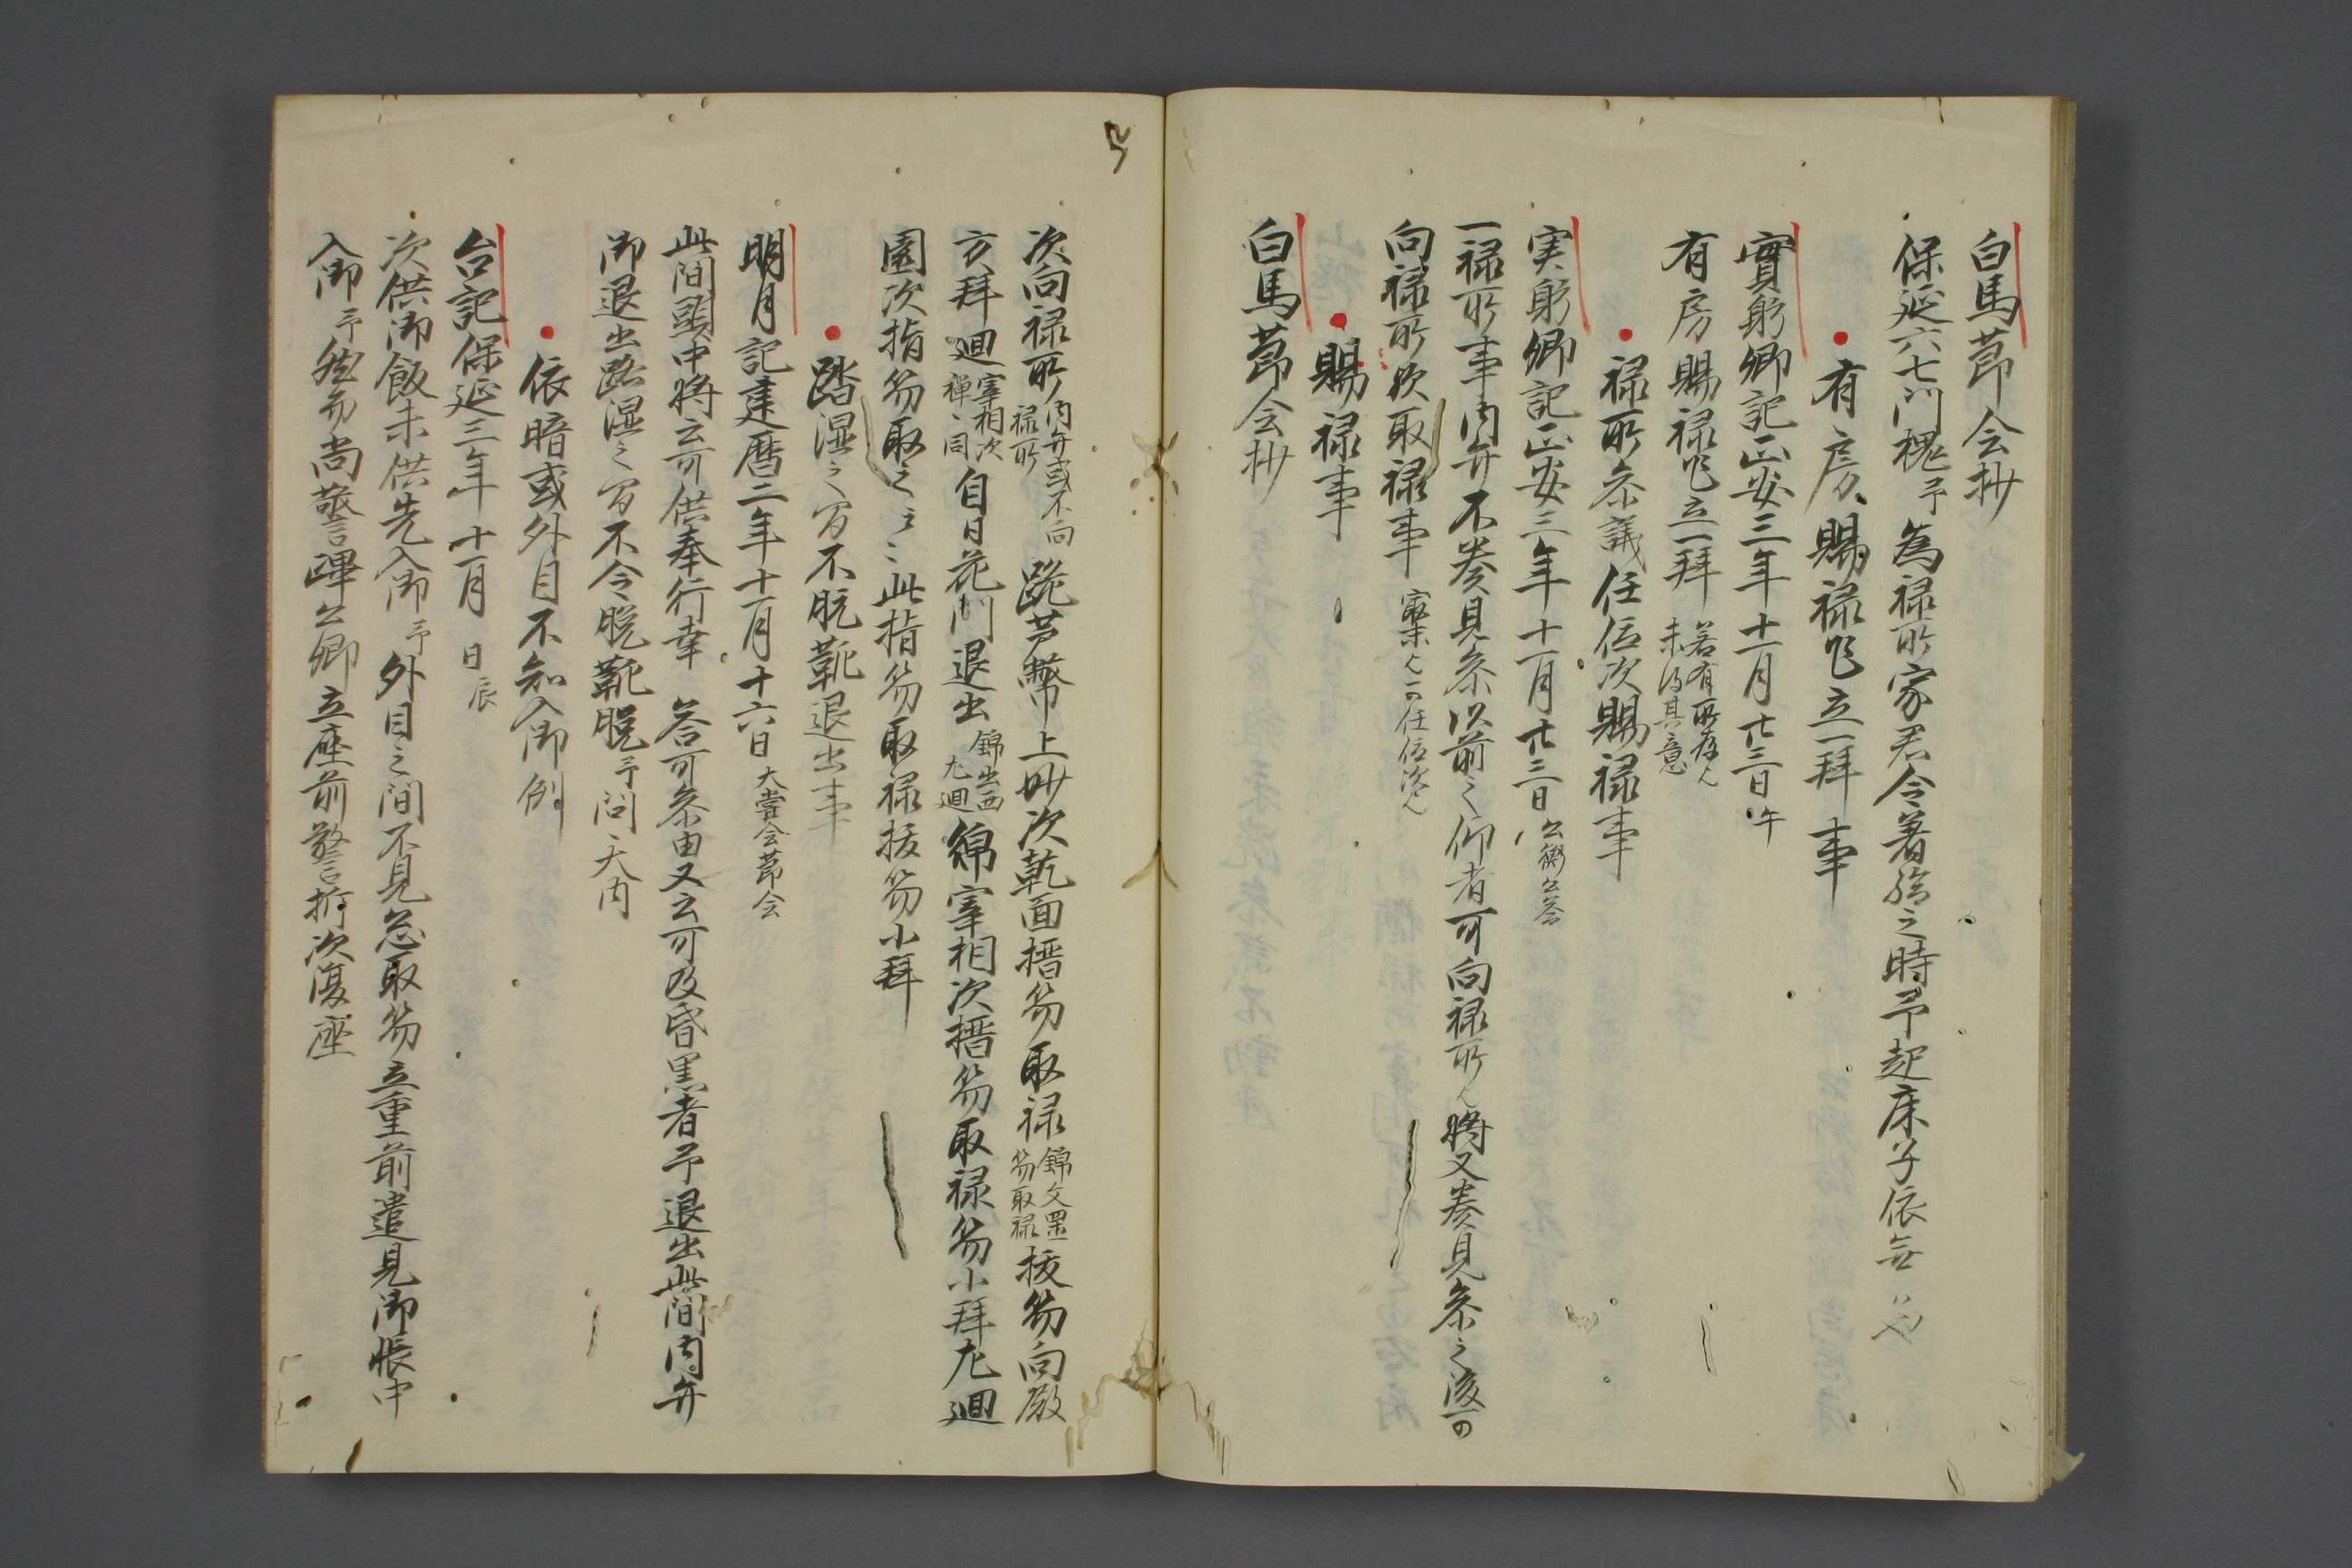 白馬莭会抄
保延六七門槐予為禄所家君令著給之時予起床子依無
有房賜禄乍立一拝事
實躬卿記正安三年十一月廿三日午
有房賜禄乍立一拝若有所存欤
未得其意
禄所参議任位次賜禄事
実躬卿記正安三年十一月廿三日
一禄所事内弁不奏見参以前之仰者可向禄所欤将又奏見参之後可
向禄所欤取禄事寂末欤可任位次欤
賜禄事
白馬莭会抄
次向禄所内弁或不向
禄所跪芦幣上妙次乾面搢笏取禄錦文置
笏取禄抜笏向殿
方拝廻宰相次
禅同自日花門退出錦出西
左廻綿宰相次搢笏取禄笏小拝左廻
園次指笏取之云々此指笏取禄抜笏小拝
踏湿之間不脱靴退出事
明月記建暦二年十一月十六日大嘗会莭会
此間頭中将云可供奉行幸答可参由又云可及昏黒者予退出此間内弁
御退出路湿之間不令脱靴脱予問大内
依暗或外目不知入御例
台記保延三年十一月日辰
次供御飯未供先入御予外目之間不見忽取笏立重前遣見御帳中
入御予尚警蹕公卿立座前警折次復座